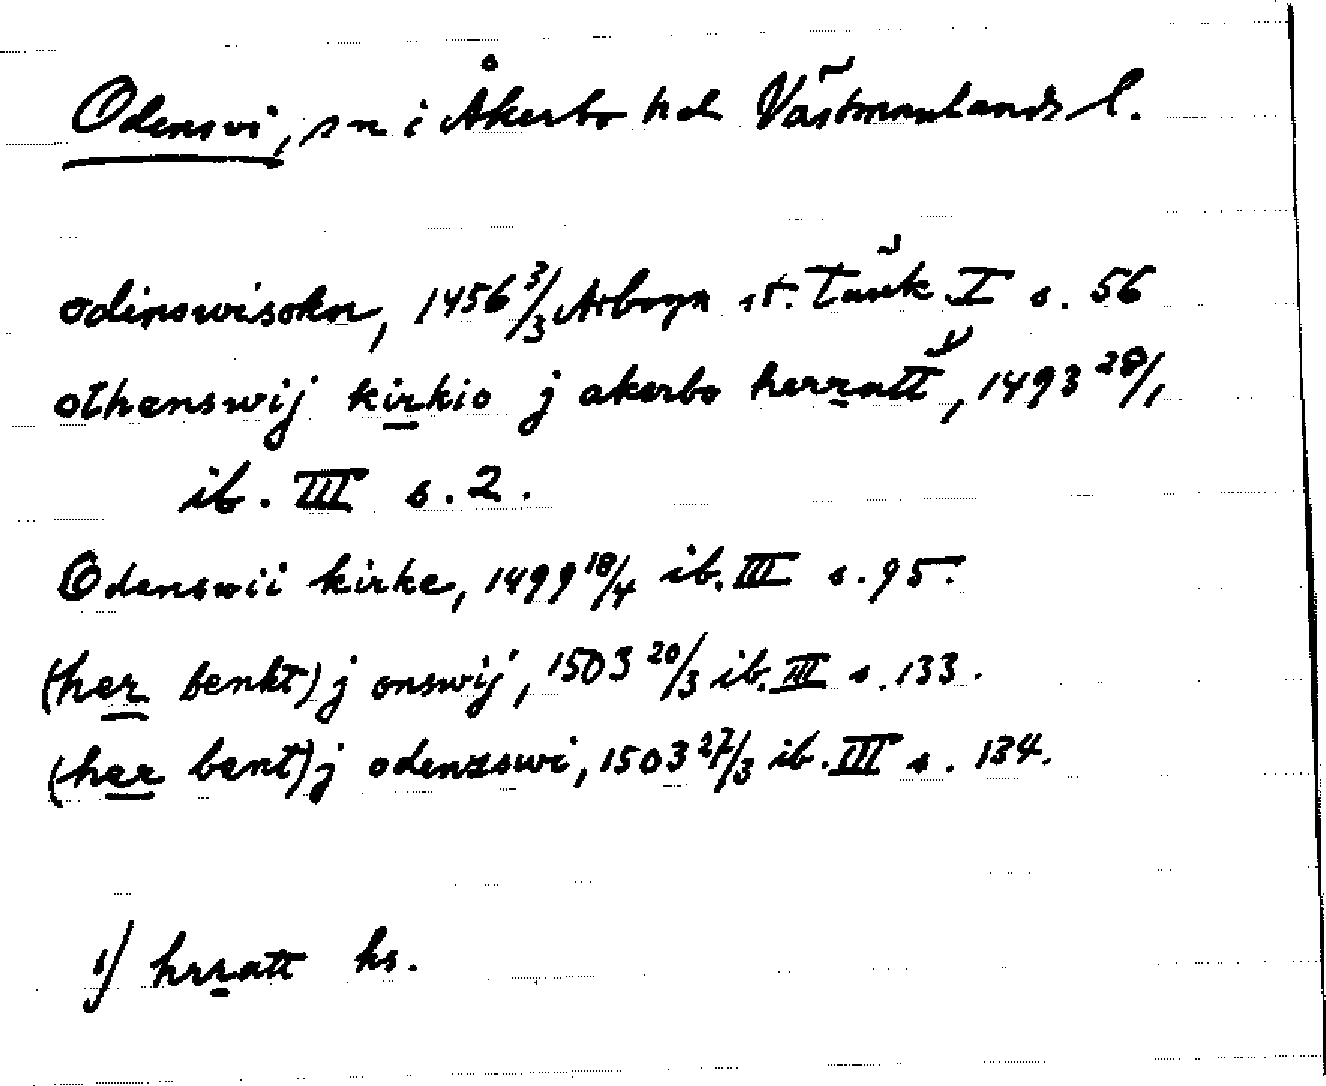 Odensvi, sn i Åkerbo hd Västmanlands l.
odinswisokn, 1456 3/3 Arboga st. Tänk. I s. 56
othenswij kirkio j akerbo herratt 1), 1493 28/1
ib. III s. 2.
Odenswii kirke, 1499 18/4 ib. III s. 95.
(her benkt) j onswij, 1503 20/3 ib. III s. 133.
(her bent) j odenzswi, 1503 27/3 ib. III s. 134.
1) hrratt hs.